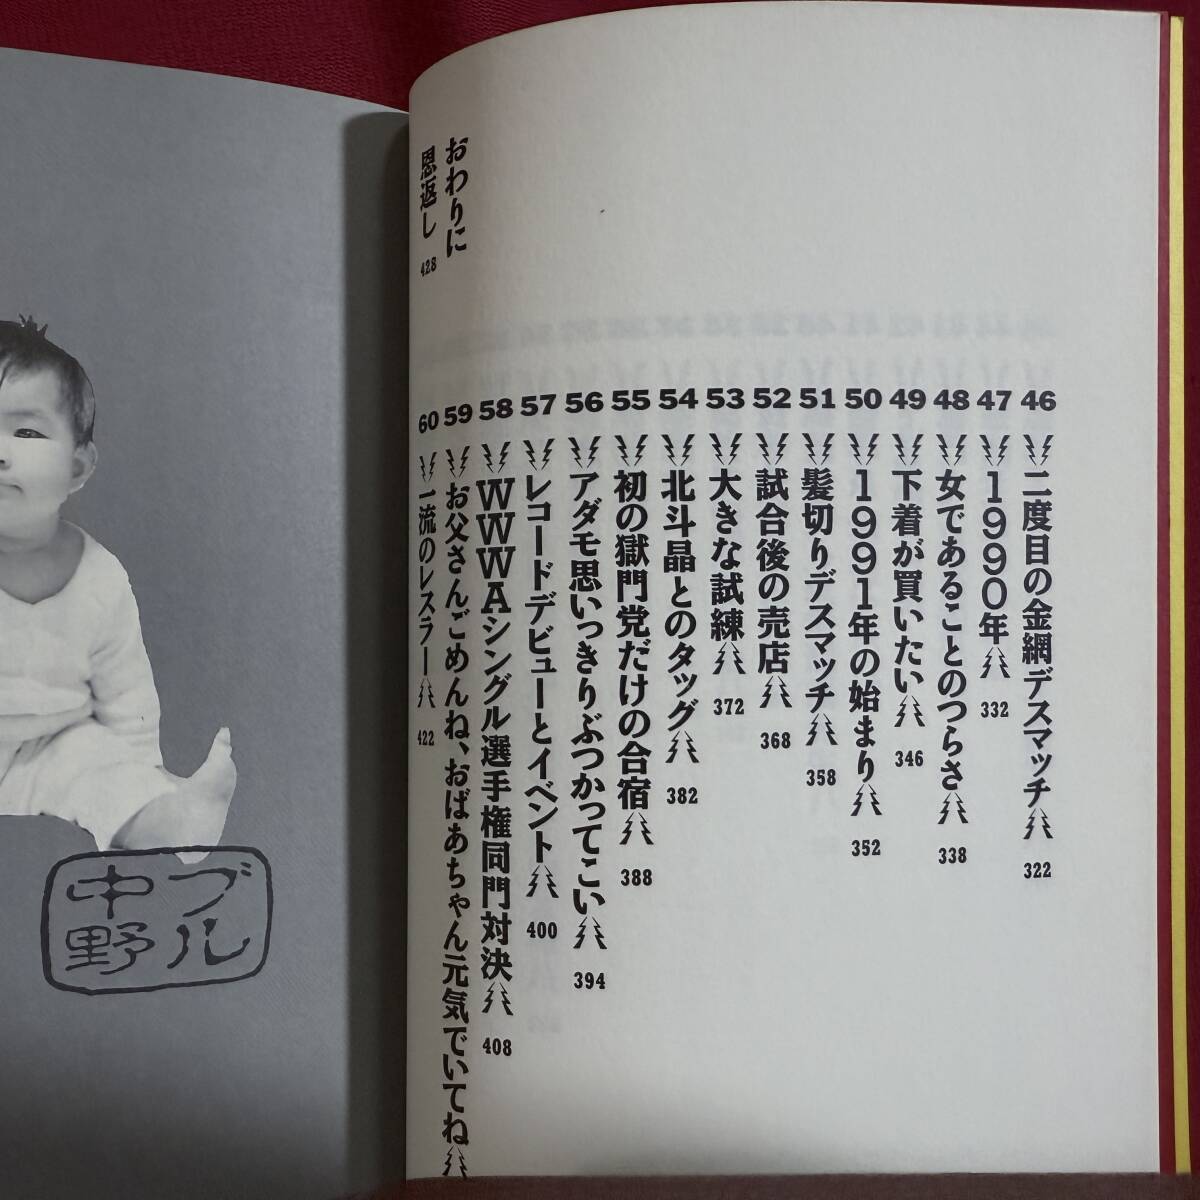 46 二度目の金網デスマッチ 322
47 1990年 332
48 女であることのつらさ 338
49 下着が買いたい 346
50 1991年の始まり 352
51 髪切りデスマッチ 358
52 試合後の売店 368
53 大きな試練 372
54 北斗晶とのタッグ 382
55 初の獄門党だけの合宿 388
56 アダモ思いっきりぶつかってこい 394
57 レコードデビューとイベント 400
58 WWWAシングル選手権同門対決 408
59 お父さんごめんね、おばあちゃん元気でいてね
60 一流のレスラー 422
おわりに
恩返し 428
ブル
中野